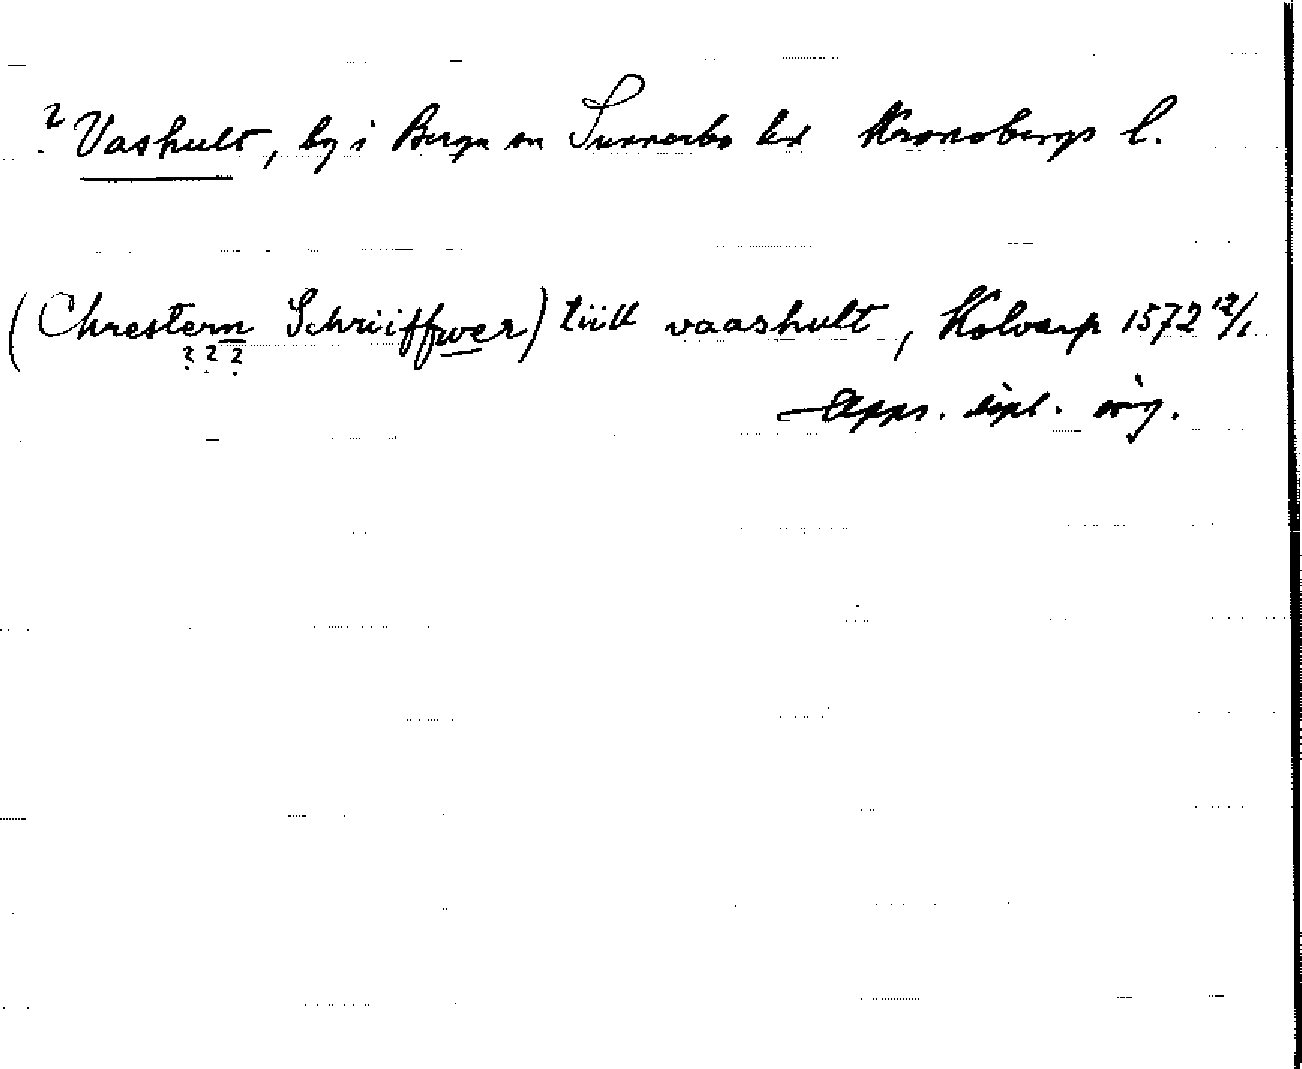 ? Vashult, by i Berga sn Sunnerbo hd Kronobergs l.
(Chrestern Schriiffwer) tiill vaashult, Kolvarp 1572 12/1
? ? ?
Apps. dipl. orig.